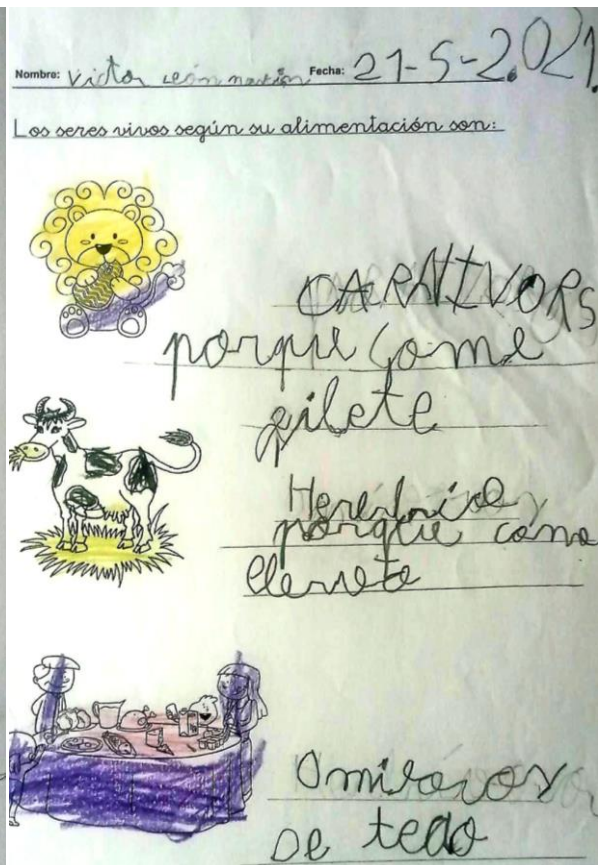 Nombre: Victor León martín Fecha: 21-5-2.021.
Los seres vivos según su alimentación son:
CARNIVORS
porque come
filete
porque come
De tedo